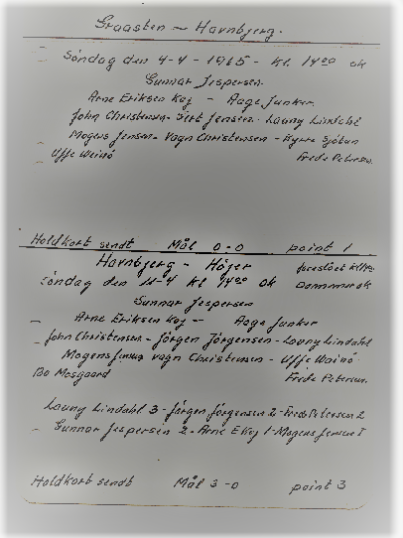 Graasten - Havnbjerg.
Søndag den 4-4-1965 - kl. 14⁰⁰ ok
Gunnar Jespersen.
Arne Eriksen Koj - Aage Junker.
John Christensen - Gert Jensen - Launy Lindahl
Mogens Jensen - Vagn Christensen - Bjarne
Uffe Weinó Frede Petersen.
Holdkort sendt Mål 0-0 point 1
Havnbjerg - Højer
Søndag den 11-4 kl 14⁰⁰ ok
Gunnar Jespersen
Arne Eriksen Koj - Aage Junker
John Christensen - Jørgen Jörgensen - Launy Lindahl
Mogens Jensen Vagn Christensen - Uffe Weinó
Bo Mosgaard Frede Petersen.
Launy Lindahl 3 - Jørgen Jörgensen 2 - Frede Petersen 2
Gunnar Jespersen 2 - Arne E Koj 1 - Mogens Jensen 1
Holdkort sendt Mål 3-0 point 3